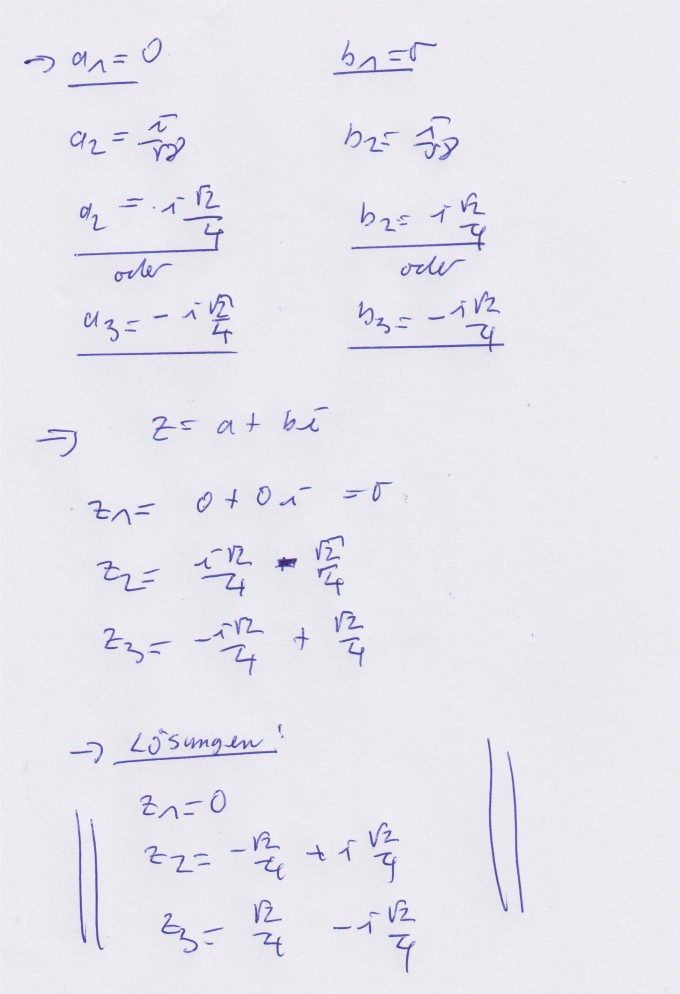 → a₁ = 0 b₁ = 0
a₂ = i/√8 b₂ = i/√8
a₂ = i √2/4 b₂ = i √2/4
oder oder
a₃ = - i √2/4 b₃ = - i √2/4
⇒ z = a + bi
z₁ = 0 + 0 i = 0
z₂ = i√2/4 - √2/4
z₃ = -i√2/4 + √2/4
→ Lösungen!
z₁ = 0
z₂ = -√2/4 + i √2/4
z₃ = √2/4 - i √2/4